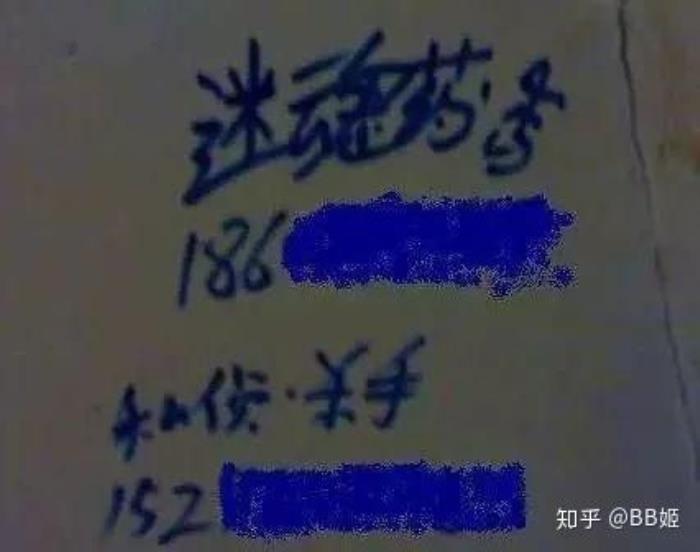 迷魂药·
186
私侦·杀手
152
知乎 @BB姬